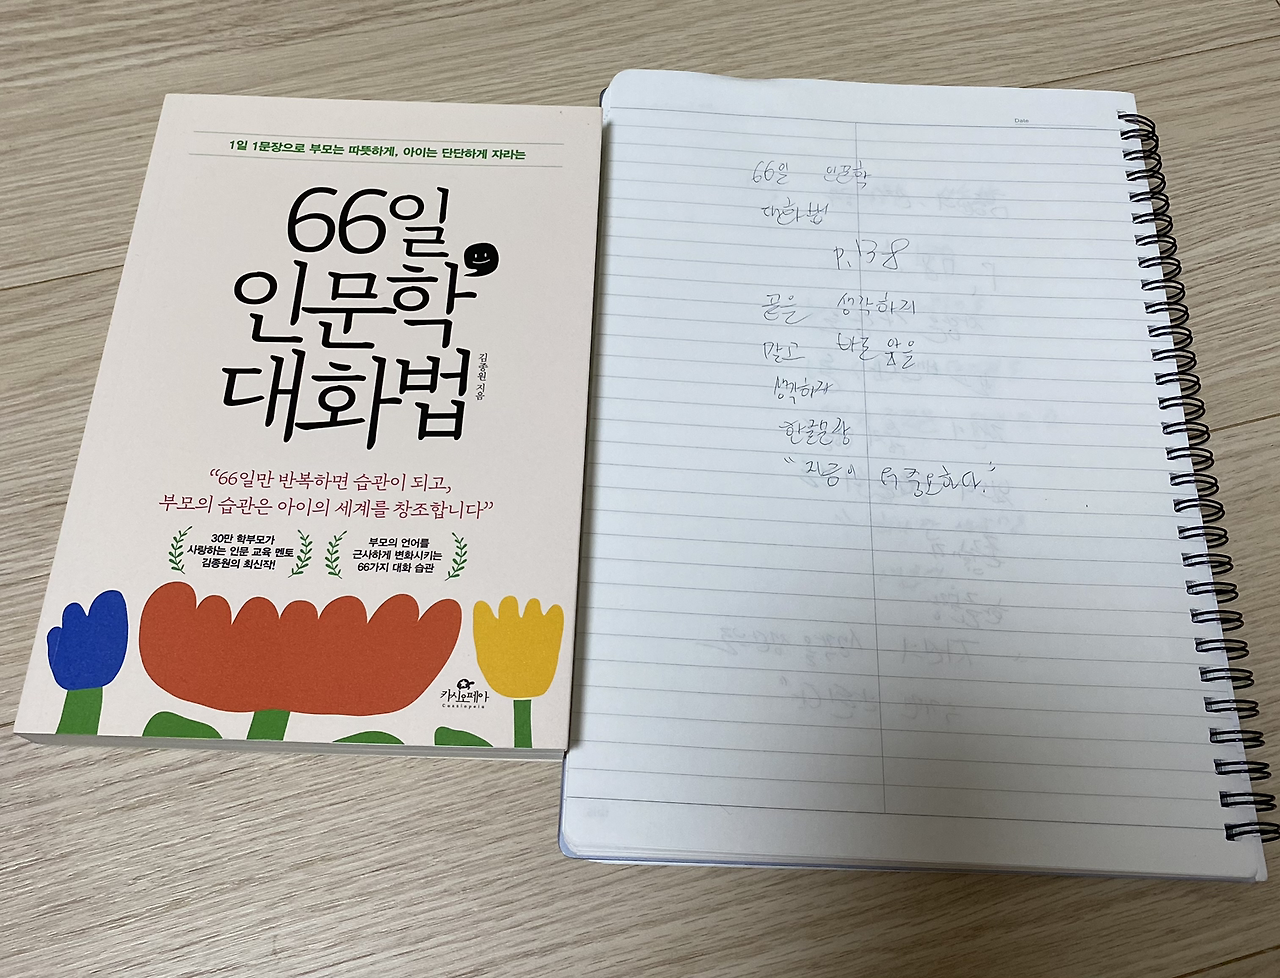 1일 1문장으로 부모는 따뜻하게, 아이는 단단하게 자라는
66일
인문학
대화법
김종원 지음
“66일만 반복하면 습관이 되고,
부모의 습관은 아이의 세계를 창조합니다”
30만 학부모가
사랑하는 인문 교육 멘토
김종원의 최신작!
부모의 언어를
근사하게 변화시키는
66가지 대화 습관
카시오페아
Cassiopeia
Date
66일 인문학
대화법
p.138
곧은 생각하지
말고 바로 앞을
생각하라
한글문장
"지금이 더 중요하다."